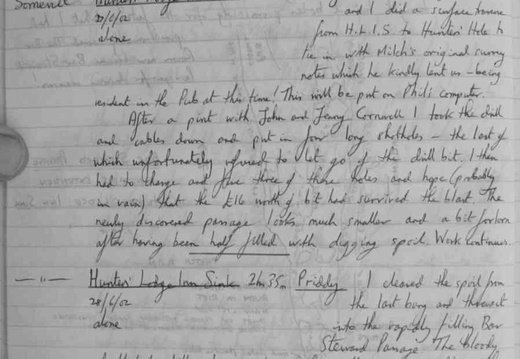 Somerset
27/6/02
alone
and I did a surface traverse
from H.L.I.S. to Hunters' Hole to
tie in with Milch's original survey
notes which he kindly lent us – being
resident in the Pub at this time! This will be put on Phil's computer.
After a pint with John and Jenny Cornwell I took the drill
and cables down and put in four long shotholes – the last of
which unfortunately refused to let go of the drill bit. I then
had to charge and fire three of these holes and hope (probably
in vain) that the £16 worth of bit had survived the blast. The
newly discovered passage looks much smaller and a bit forlorn
after having been half filled with digging spoil. Work continues.
— " — Hunters' Lodge Inn Sink 2hr 35m Priddy I cleared the spoil from
28/6/02 the last bang and threw it
alone into the rapidly filling Bar
Steward Passage. The bloody